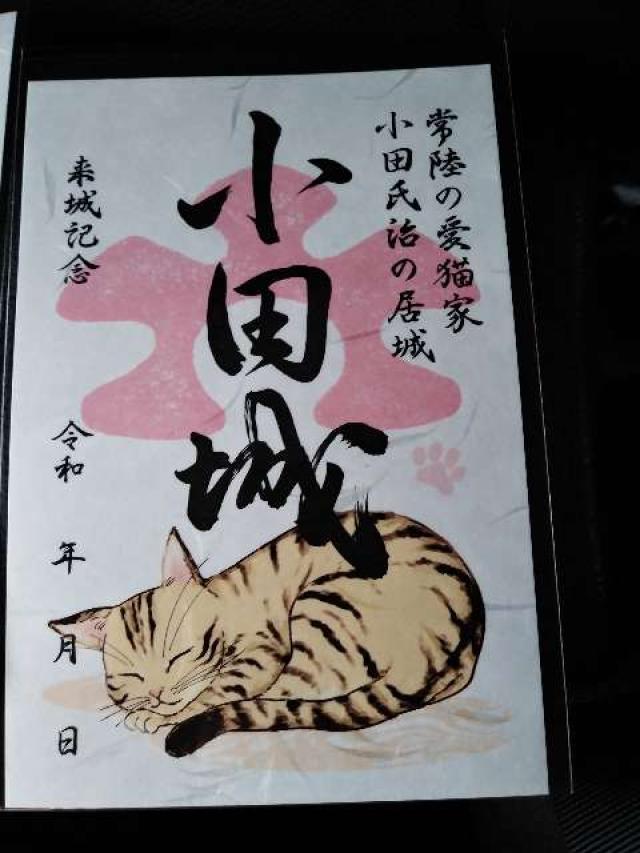 常陸の愛猫家
小田氏治の居城
小田城
来城記念
令和 年 月 日